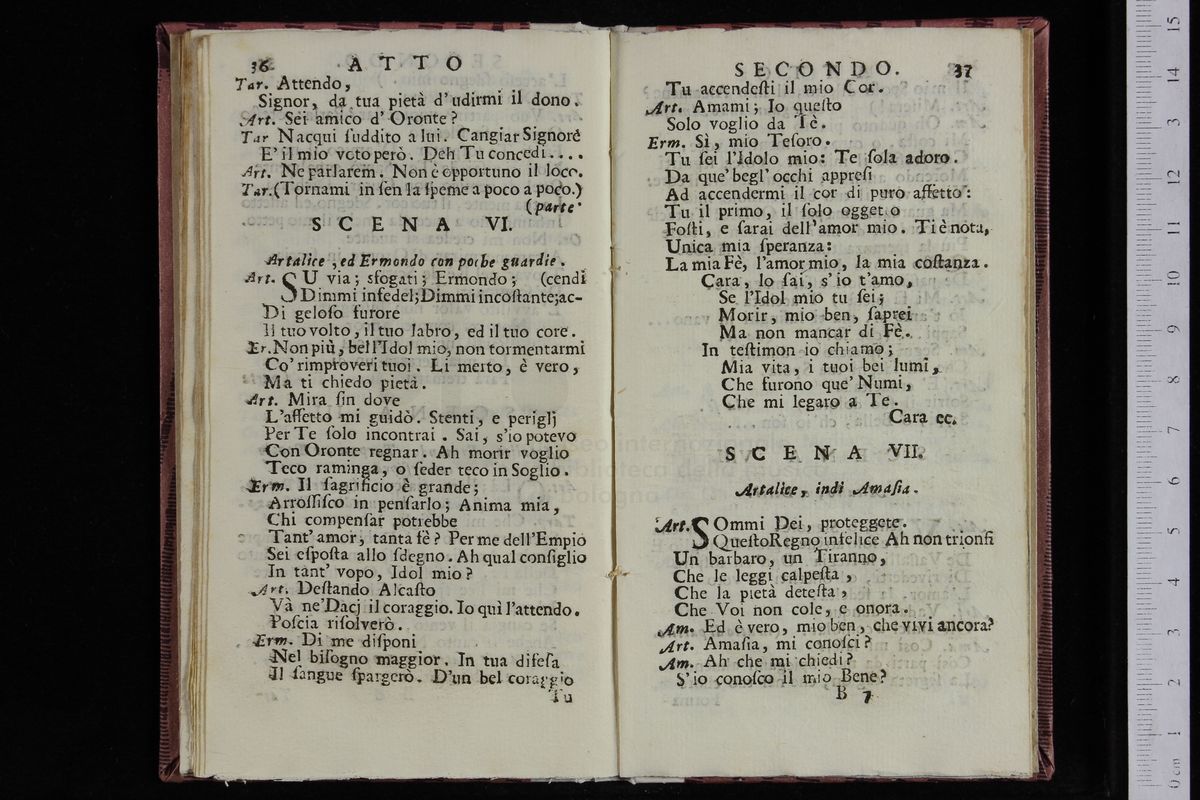 36 ATTO
Tar. Attendo,
Signor, da tua pietà d'udirmi il dono.
Art. Sei amico d'Oronte?
Tar Nacqui ſuddito a lui. Cangiar Signorè
E' il mio voto però. Deh Tu concedi....
Art. Ne parlarem. Non è opportuno il loco.
Tar. (Tornami in ſen la ſpeme a poco a poco.)
(parte.
SCENA VI.
Artalice, ed Ermondo con poche guardie.
Art. SU via; sfogati; Ermondo; (cendi
Dimmi infedel; Dimmi incoſtante; ac-
Di geloſo furore
Il tuo volto, il tuo labro, ed il tuo core.
Er. Non più, bell'Idol mio, non tormentarmi
Co' rimproveri tuoi. Li merto, è vero,
Ma ti chiedo pietà.
Art. Mira ſin dove
L'affetto mi guidò. Stenti, e periglj
Per Te ſolo incontrai. Sai, s'io potevo
Con Oronte regnar. Ah morir voglio
Teco raminga, o ſeder teco in Soglio.
Erm. Il ſagrificio è grande;
Arroſſiſco in penſarlo; Anima mia,
Chi compenſar potrebbe
Tant'amor, tanta fè? Per me dell'Empio
Sei eſpoſta allo ſdegno. Ah qual conſiglio
In tant'vopo, Idol mio?
Art. Deſtando Alcaſto
Và ne'Dacj il coraggio. Io quì l'attendo.
Poſcia riſolverò.
Erm. Di me diſponi
Nel biſogno maggior. In tua difeſa
Il ſangue ſpargerò. D'un bel coraggio
Tu
SECONDO. 37
Tu accendeſti il mio Cor.
Art. Amami; Io queſto
Solo voglio da Tè.
Erm. Sì, mio Teſoro.
Tu ſei l'Idolo mio: Te ſola adoro.
Da que' begl'occhi appreſi
Ad accendermi il cor di puro affetto:
Tu il primo, il ſolo ogget o
Foſti, e ſarai dell'amor mio. Ti è nota,
Unica mia ſperanza:
La mia Fè, l'amor mio, la mia coſtanza.
Cara, lo ſai, s'io t'amo,
Se l'Idol mio tu ſei;
Morir, mio ben, ſaprei
Ma non mancar di Fè.
In teſtimon io chiamo;
Mia vita, i tuoi bei lumi,
Che furono que' Numi,
Che mi legaro a Te.
Cara ec.
SCENA VII.
Artalice, indi Amaſia.
Art. SOmmi Dei, proteggete.
Queſto Regno infelice Ah non trionfi
Un barbaro, un Tiranno,
Che le leggi calpeſta,
Che la pietà deteſta,
Che Voi non cole, e onora.
Am. Ed è vero, mio ben, che vivi ancora?
Art. Amaſia, mi conoſci?
Am. Ah che mi chiedi?
S'io conoſco il mio Bene?
B 7